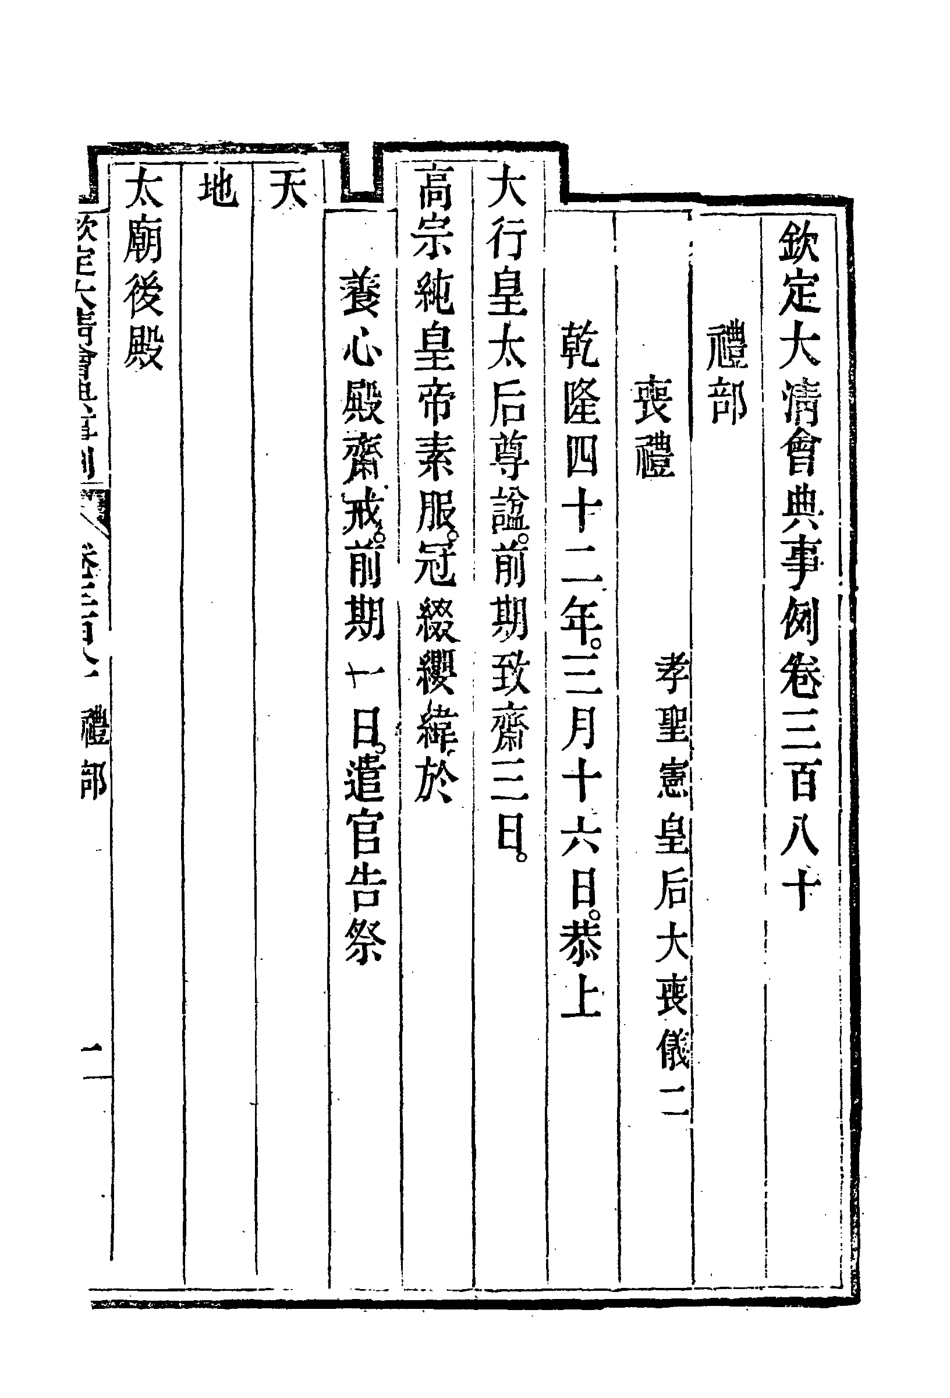 欽定大清會典事例卷三百八十
禮部
喪禮 孝聖憲皇后大喪儀二
乾隆四十二年。三月十六日。恭上
大行皇太后尊諡。前期致齋三日。
高宗純皇帝素服。冠綴纓緯。於
養心殿齋戒。前期一日。遣官告祭
天
地
太廟後殿
欽定大清會典事例 禮部 一